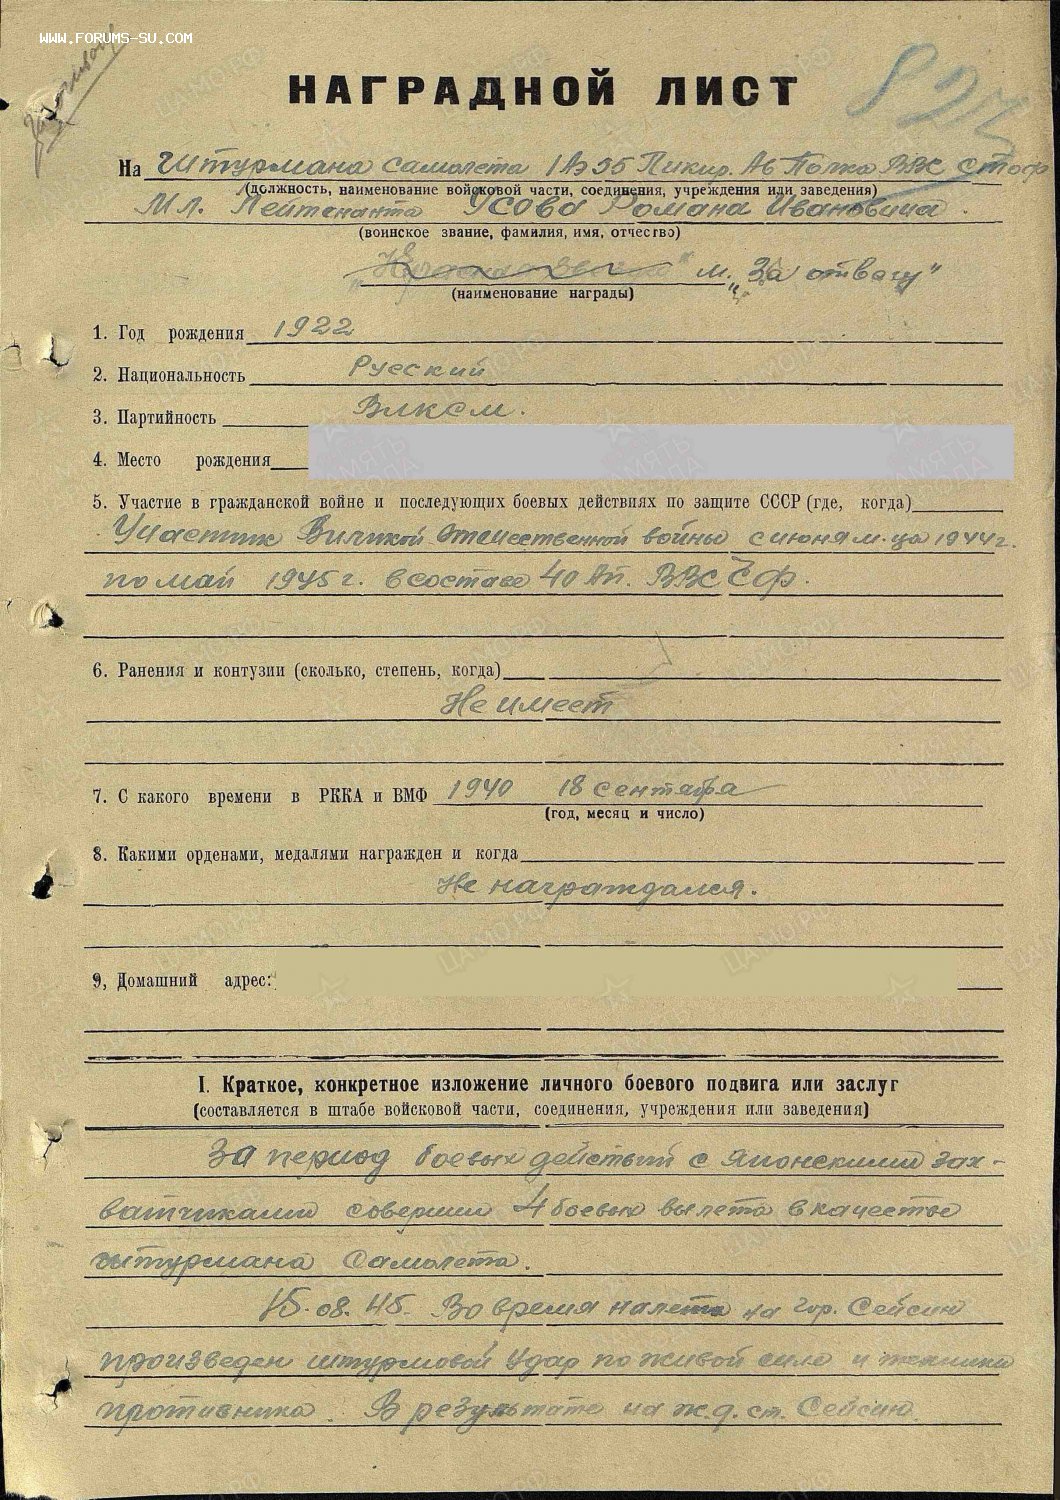 WWW.FORUMS-SU.COM
НАГРАДНОЙ ЛИСТ
На Штурмана самолета 1 АЭ 35 Пикир. Ав Полка ВВС СТОФ
(должность, наименование войсковой части, соединения, учреждения или заведения)
Мл. Лейтенанта Усова Романа Ивановича.
(воинское звание, фамилия, имя, отчество)
м. "За отвагу"
(наименование награды)
1. Год рождения 1922
2. Национальность Русский
3. Партийность ВЛКСМ.
4. Место рождения
5. Участие в гражданской войне и последующих боевых действиях по защите СССР (где, когда)
Участник Великой Отечественной войны с июня м-ца 1944 г.
по май 1945 г. в составе 40 Ап. ВВС ЧФ.
6. Ранения и контузии (сколько, степень, когда)
Не имеет
7. С какого времени в РККА и ВМФ 1940 18 сентября
(год, месяц и число)
8. Какими орденами, медалями награжден и когда
Не награждался.
9, Домашний адрес:
I. Краткое, конкретное изложение личного боевого подвига или заслуг
(составляется в штабе войсковой части, соединения, учреждения или заведения)
За период боевых действий с Японскими зах-
ватчиками совершил 4 боевых вылета в качестве
штурмана Самолета.
15.08.45. Во время налета на гор. Сейсин
произведен штурмовой удар по живой силе и технике
противника. В результате на ж.д. ст. Сейсин